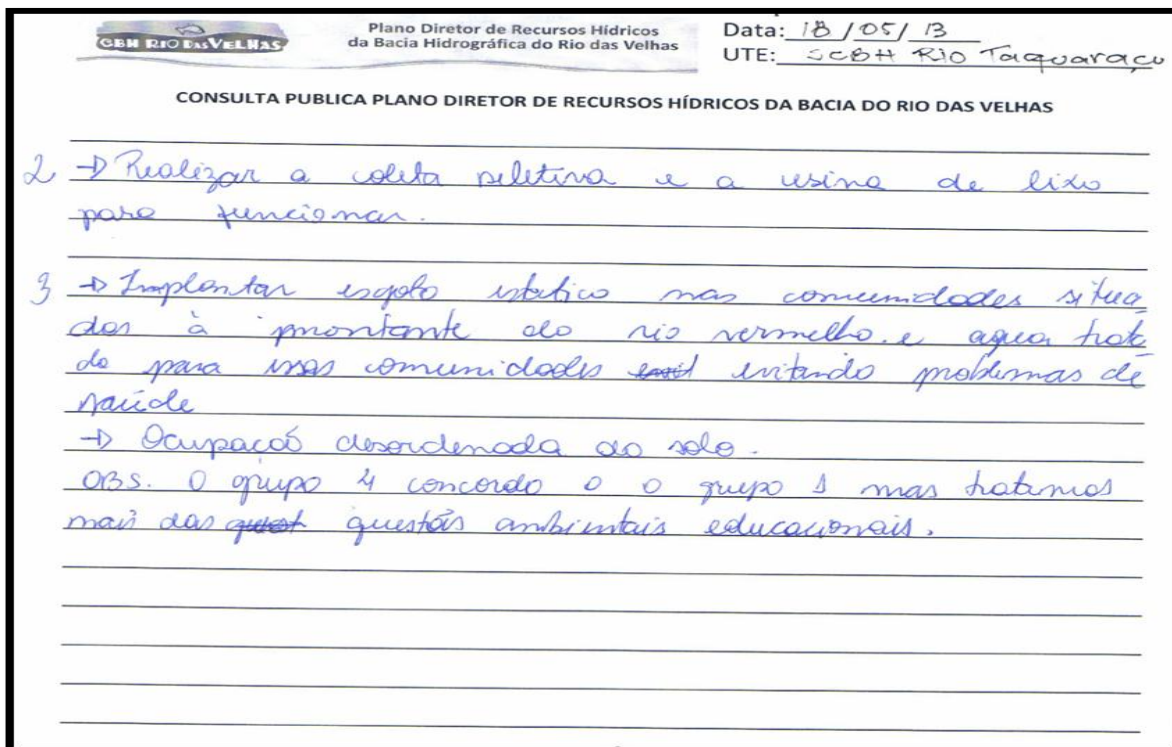 CBH RIO DAS VELHAS
Plano Diretor de Recursos Hídricos
da Bacia Hidrográfica do Rio das Velhas
Data: 18/05/13
UTE: SCBH RIO Taquaraçu
CONSULTA PUBLICA PLANO DIRETOR DE RECURSOS HÍDRICOS DA BACIA DO RIO DAS VELHAS
2 → Realizar a coleta seletiva e a usina de lixo
para funcionar.
3 → Implantar esgoto estatico nas comunidades situa
das à montante do rio vermelho. e agua trata
da para essas comunidades evitando problemas de
saúde
→ Ocupaçaó desordenada do solo.
OBS. O grupo 4 concorda o o grupo 1 mas tratamos
mais das questões ambientais educacionais.